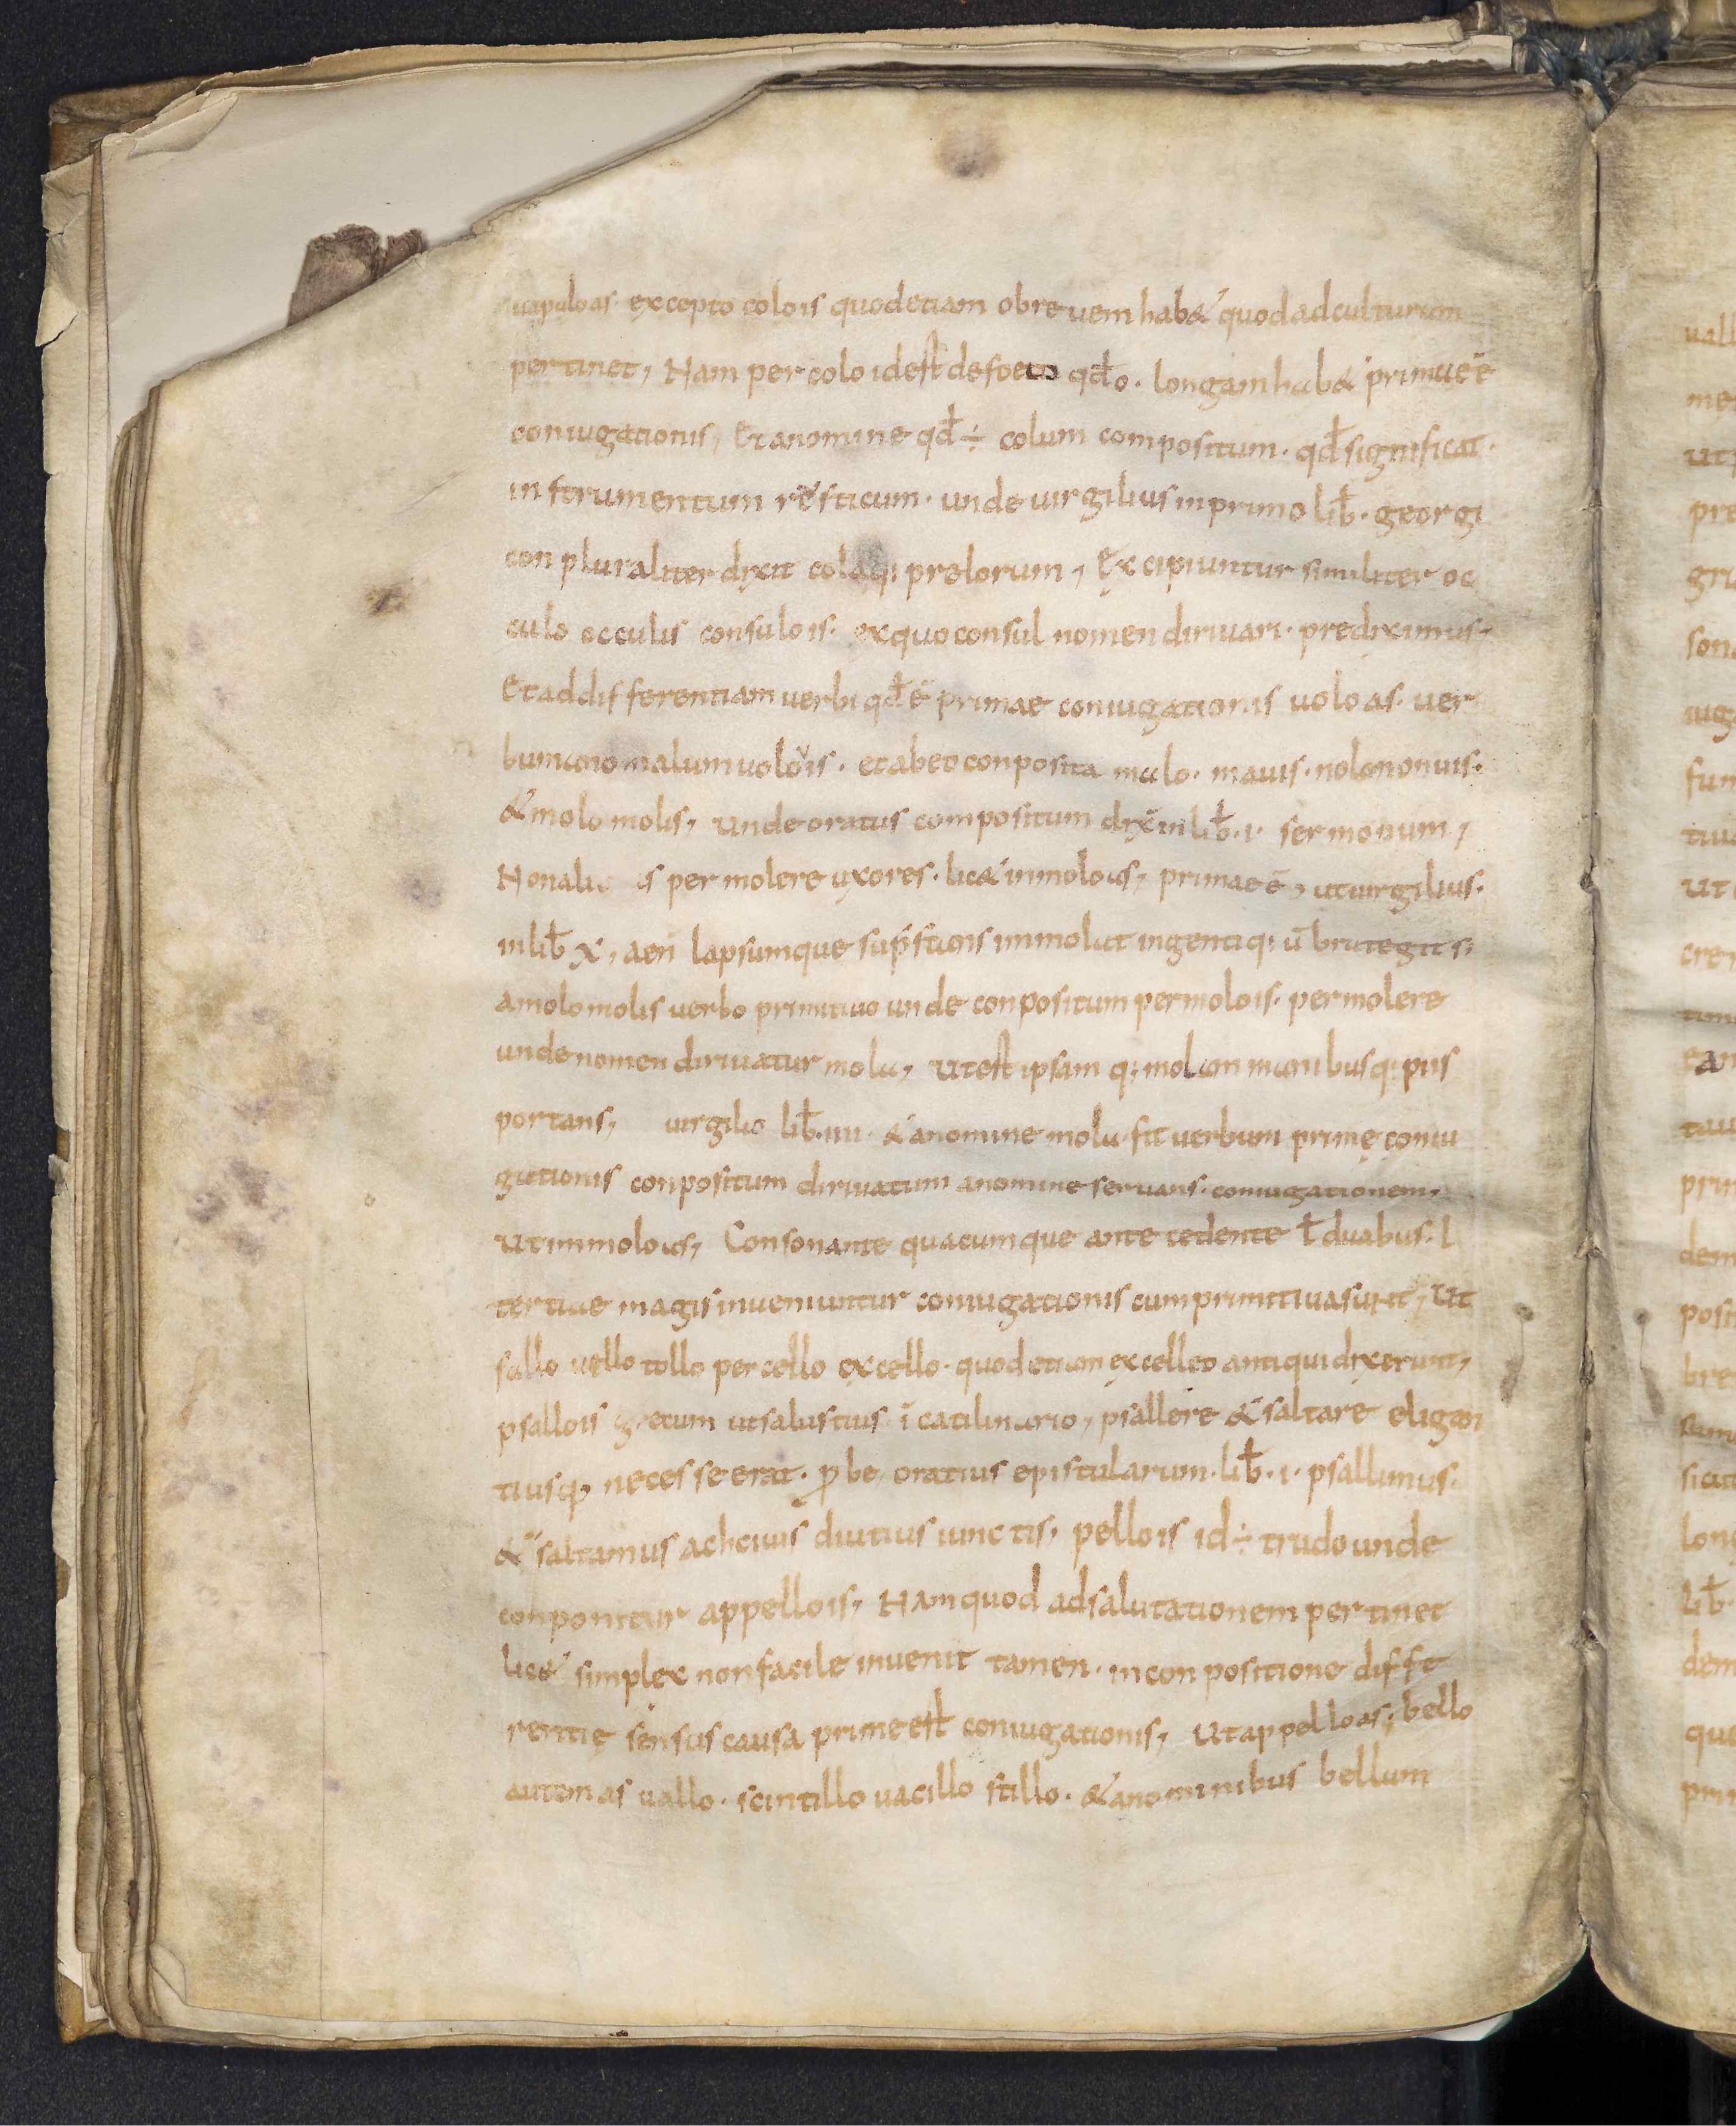 uapuloas excepto colo is quod etiam obre uem hab& quod ad culturam
pertinet, Nam per colo id est defoeco qđ o. longam hab& primae ē
coniugationis, Et a nomine qđ ÷ colum compositum. qđ significat.
instrumentum resticum. unde uirgilius in primo lib̄. georgi
con pluraliter dixit colaq; prelorum, Excipiuntur similiter oc
culo occulis consulo is. ex quo consul nomen diriuari. prediximus,
Et ad differentiam verbi qđ ē primae coniugationis uolo as. ver
bum anomalum uolo uis. et ab eo conposita malo. mauis. nolo nonuis.
& molo molis, unde oratus compositum dix̄ in lib̄. i. sermonum,
Non alie as per molere uxores. lic& inmolo as, primae ē, ut uirgilius.
in lib̄ x, aen̄ lapsumque sup̄stans immolat ingentiq; ū bra tegit si
a molo molis verbo primitiuo unde conpositum permolo is. permolere
unde nomen diriuatur mola, ut est ipsam q; molam manibusq; piis
portans, uirgilio lib̄. iiii. & a nomine mola fit uerbum prime coniu
gationis conpositum diriuatum a nomine seruans. coniugationem,
ut immolo as, Consonante quacumque ante cedente ł duabus. l
tertiae magis inueniuntur coniugationis cum primitiua sunt, Ut
sallo uello tollo per cello excello. quod etiam excelleo antiqui dixerunt,
psallo is gretum ut salustius ī catilinario, psallere & saltare eligan
tius qp̄ necesse erat. p be oratius epistularum. lib̄. i. psallimus.
& saltamus achiuis diutius unctis, pello is id ÷ trudo unde
conponitur appello is, Nam quod ad salutationem pertinet
lic& simplex non facile inuenit tamen. in con positione diffe
rentię sensus causa prime est coniugationis, Ut appello as, bello
autem as uallo. scintillo vacillo stillo. & a nominibus bellum